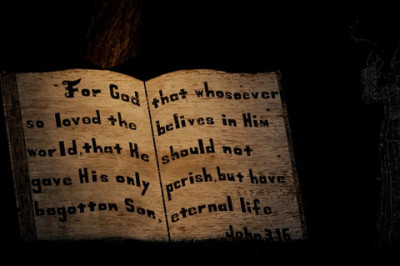 For God
so loved the
world, that He
gave His only
begotton Son,
that whosoever
belives in Him
should not
perish, but have
eternal life
John 3:16